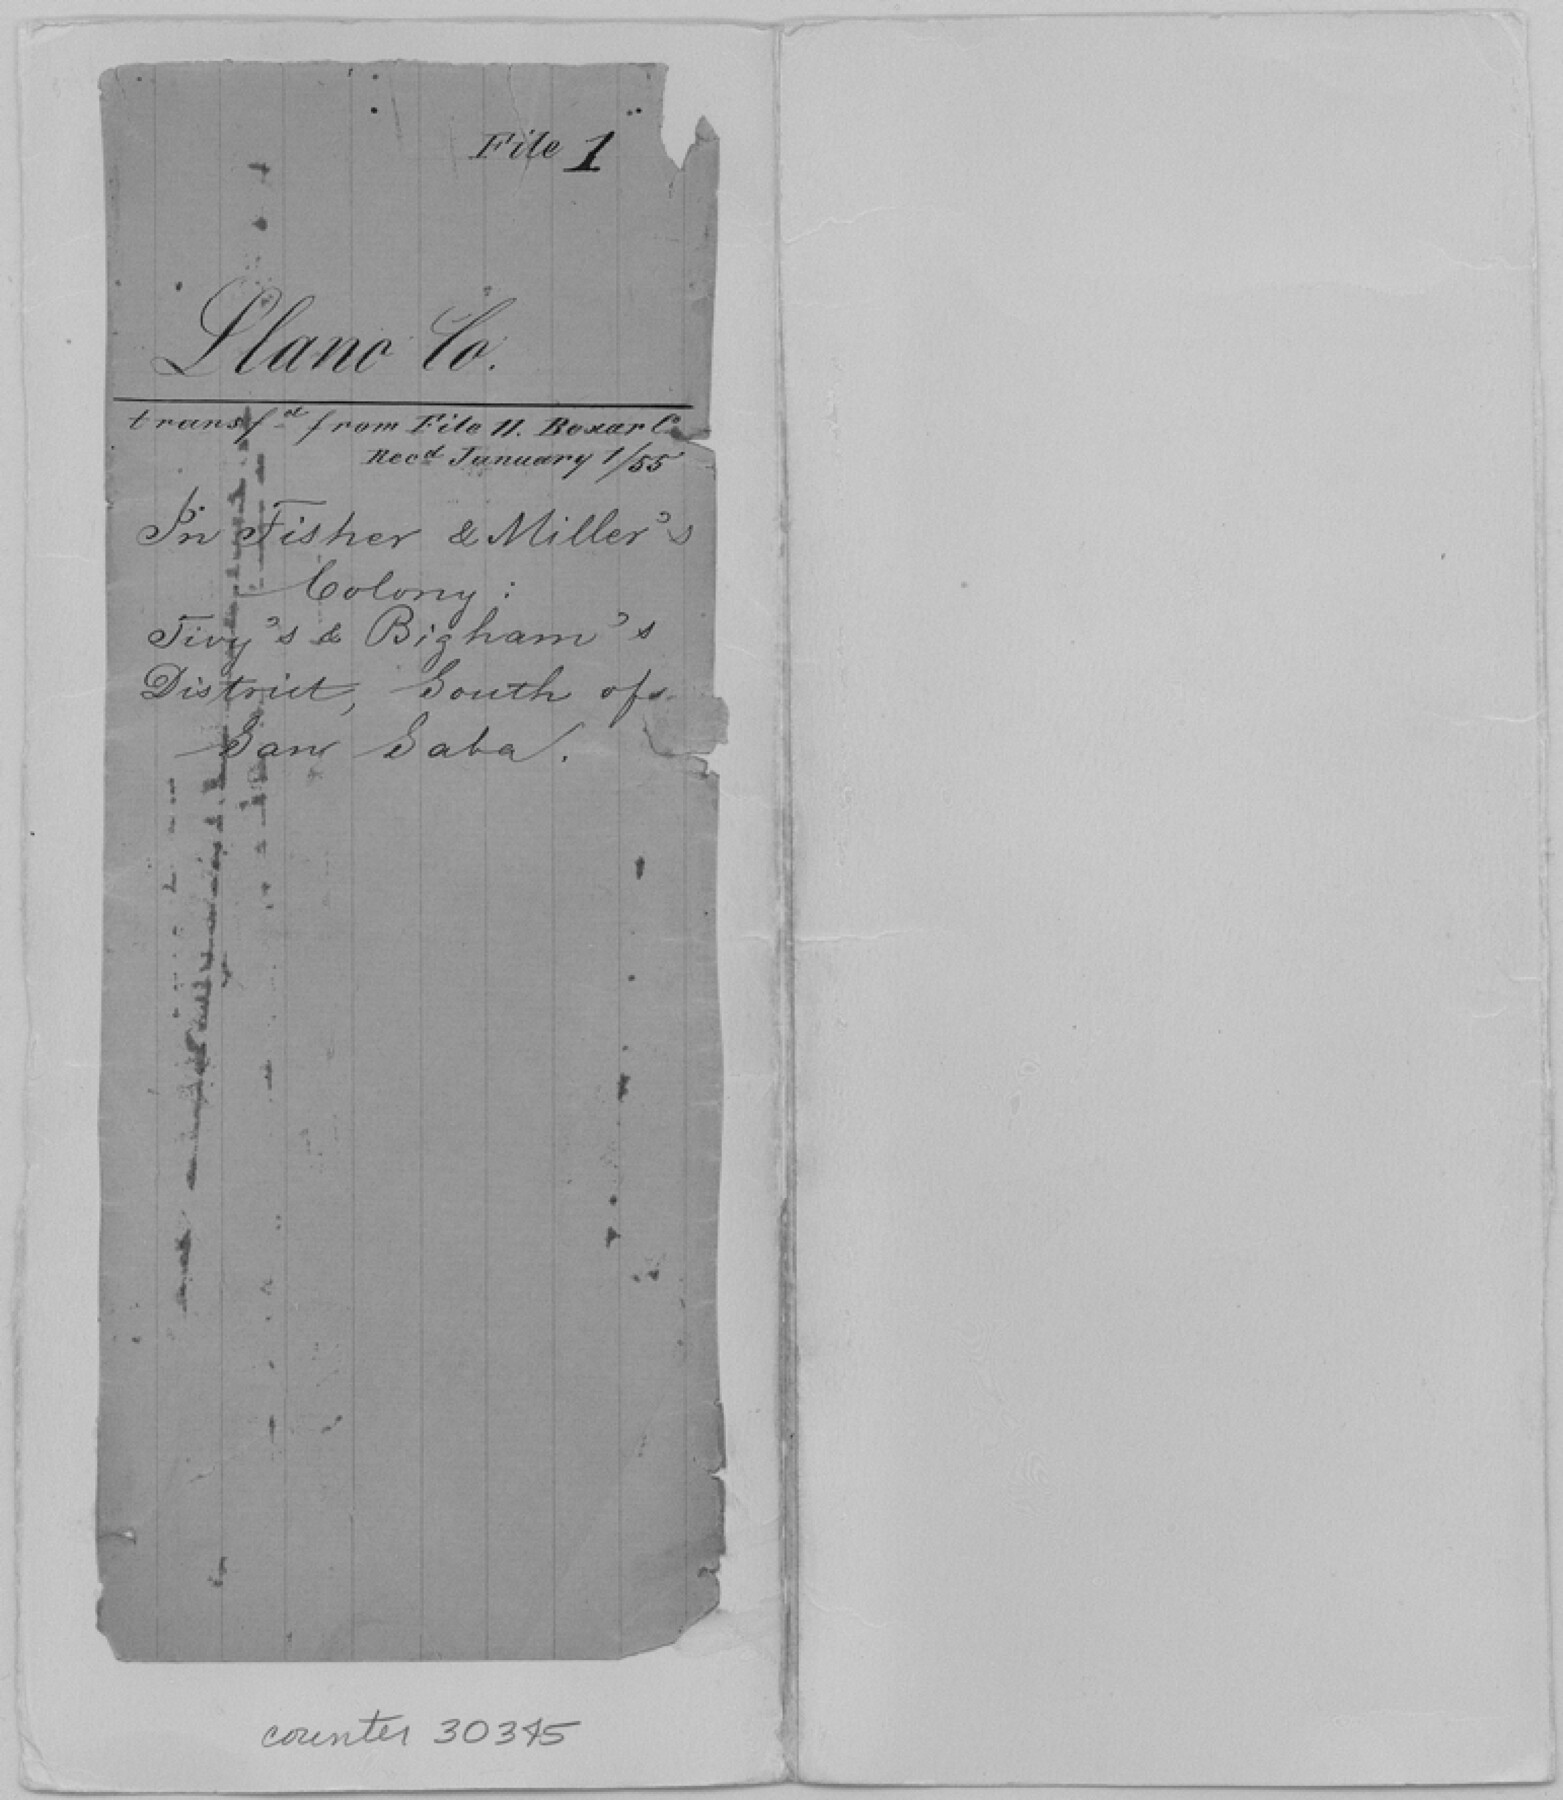 File 1
Llano Co.
transf^d from File 11. Bexar C^o
Rec^d January 1/55
In Fisher & Miller's
Colony:
Tivy's & Bigham's
District, South of
San Saba.
counter 30345